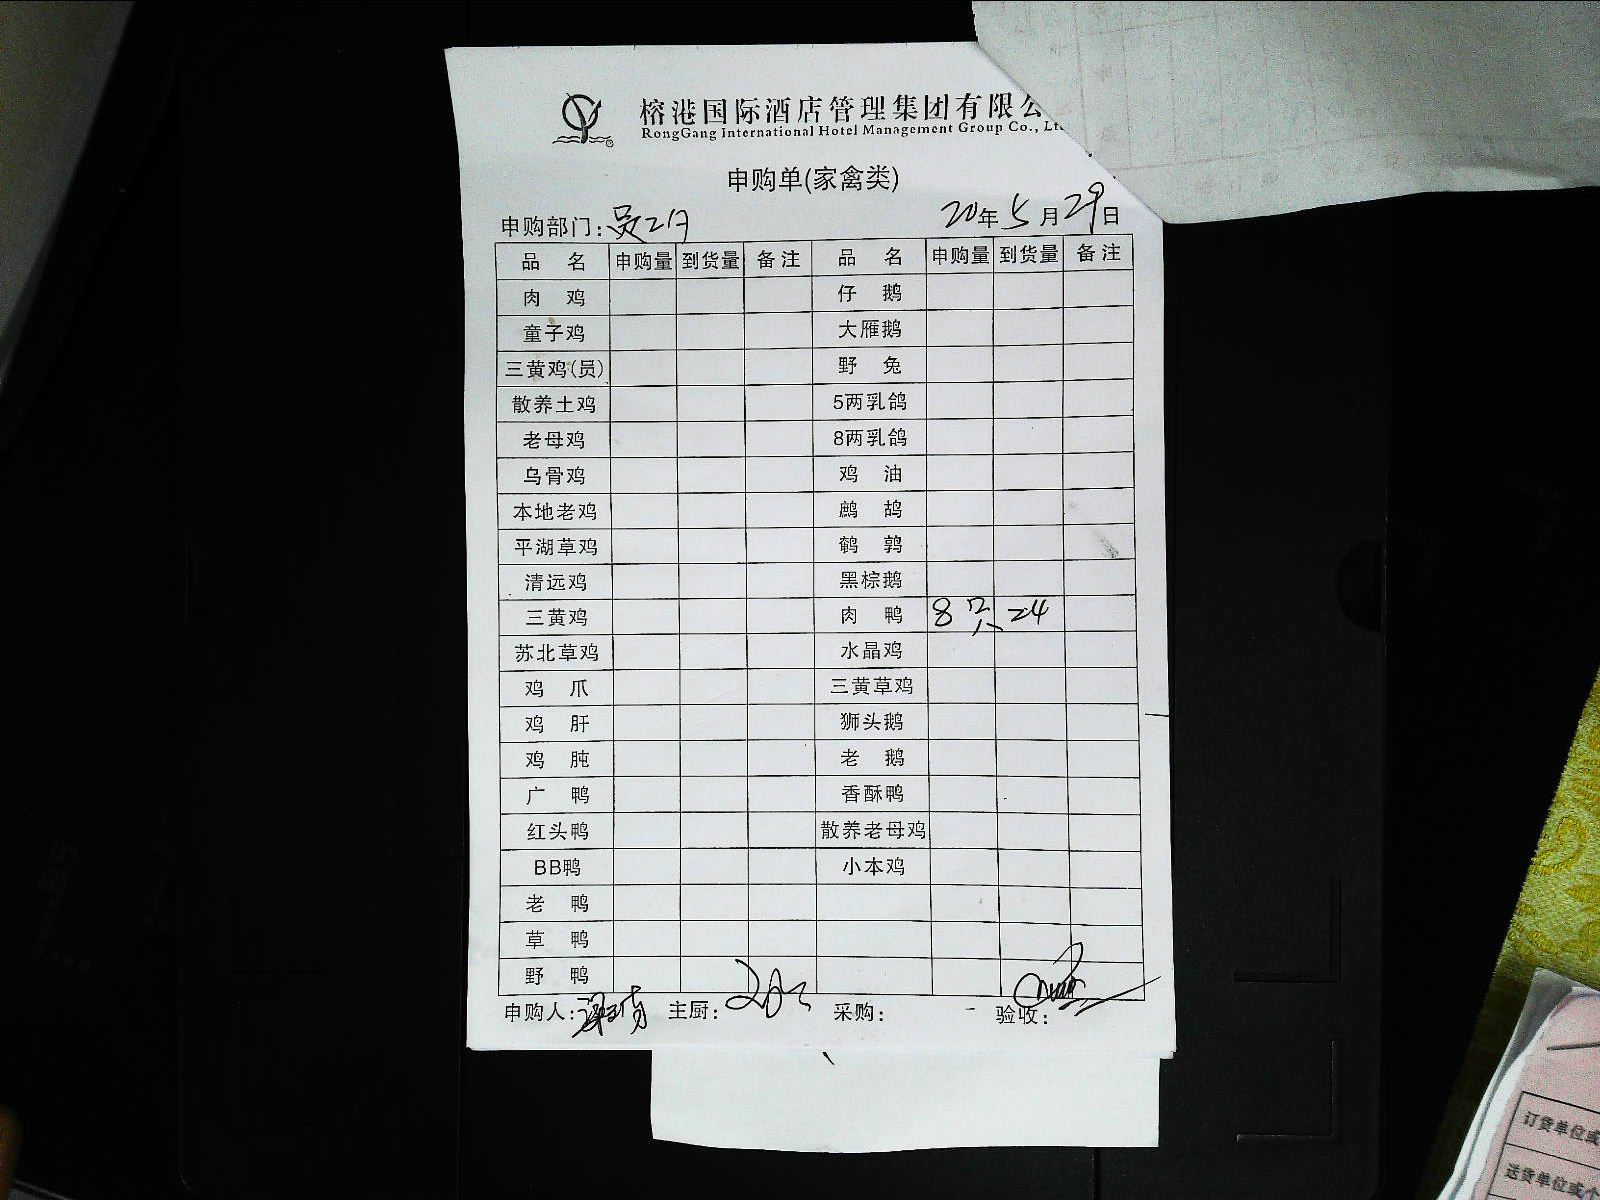 榕港国际酒店管理集团有限公
RongGang International Hotel Management Group Co., Lt
申购单(家禽类)
申购部门: 20年5月29日
品名 申购量 到货量 备注 品名 申购量 到货量 备注
肉鸡 仔鹅
童子鸡 大雁鹅
三黄鸡(员) 野兔
散养土鸡 5两乳鸽
老母鸡 8两乳鸽
乌骨鸡 鸡油
本地老鸡 鹧鸪
平湖草鸡 鹌鹑
清远鸡 黑棕鹅
三黄鸡 肉鸭 8只 24
苏北草鸡 水晶鸡
鸡爪 三黄草鸡
鸡肝 狮头鹅
鸡肫 老鹅
广鸭 香酥鸭
红头鸭 散养老母鸡
BB鸭 小本鸡
老鸭
草鸭
野鸭
申购人: 主厨: 采购: 验收:
订货单位或
送货单位或个